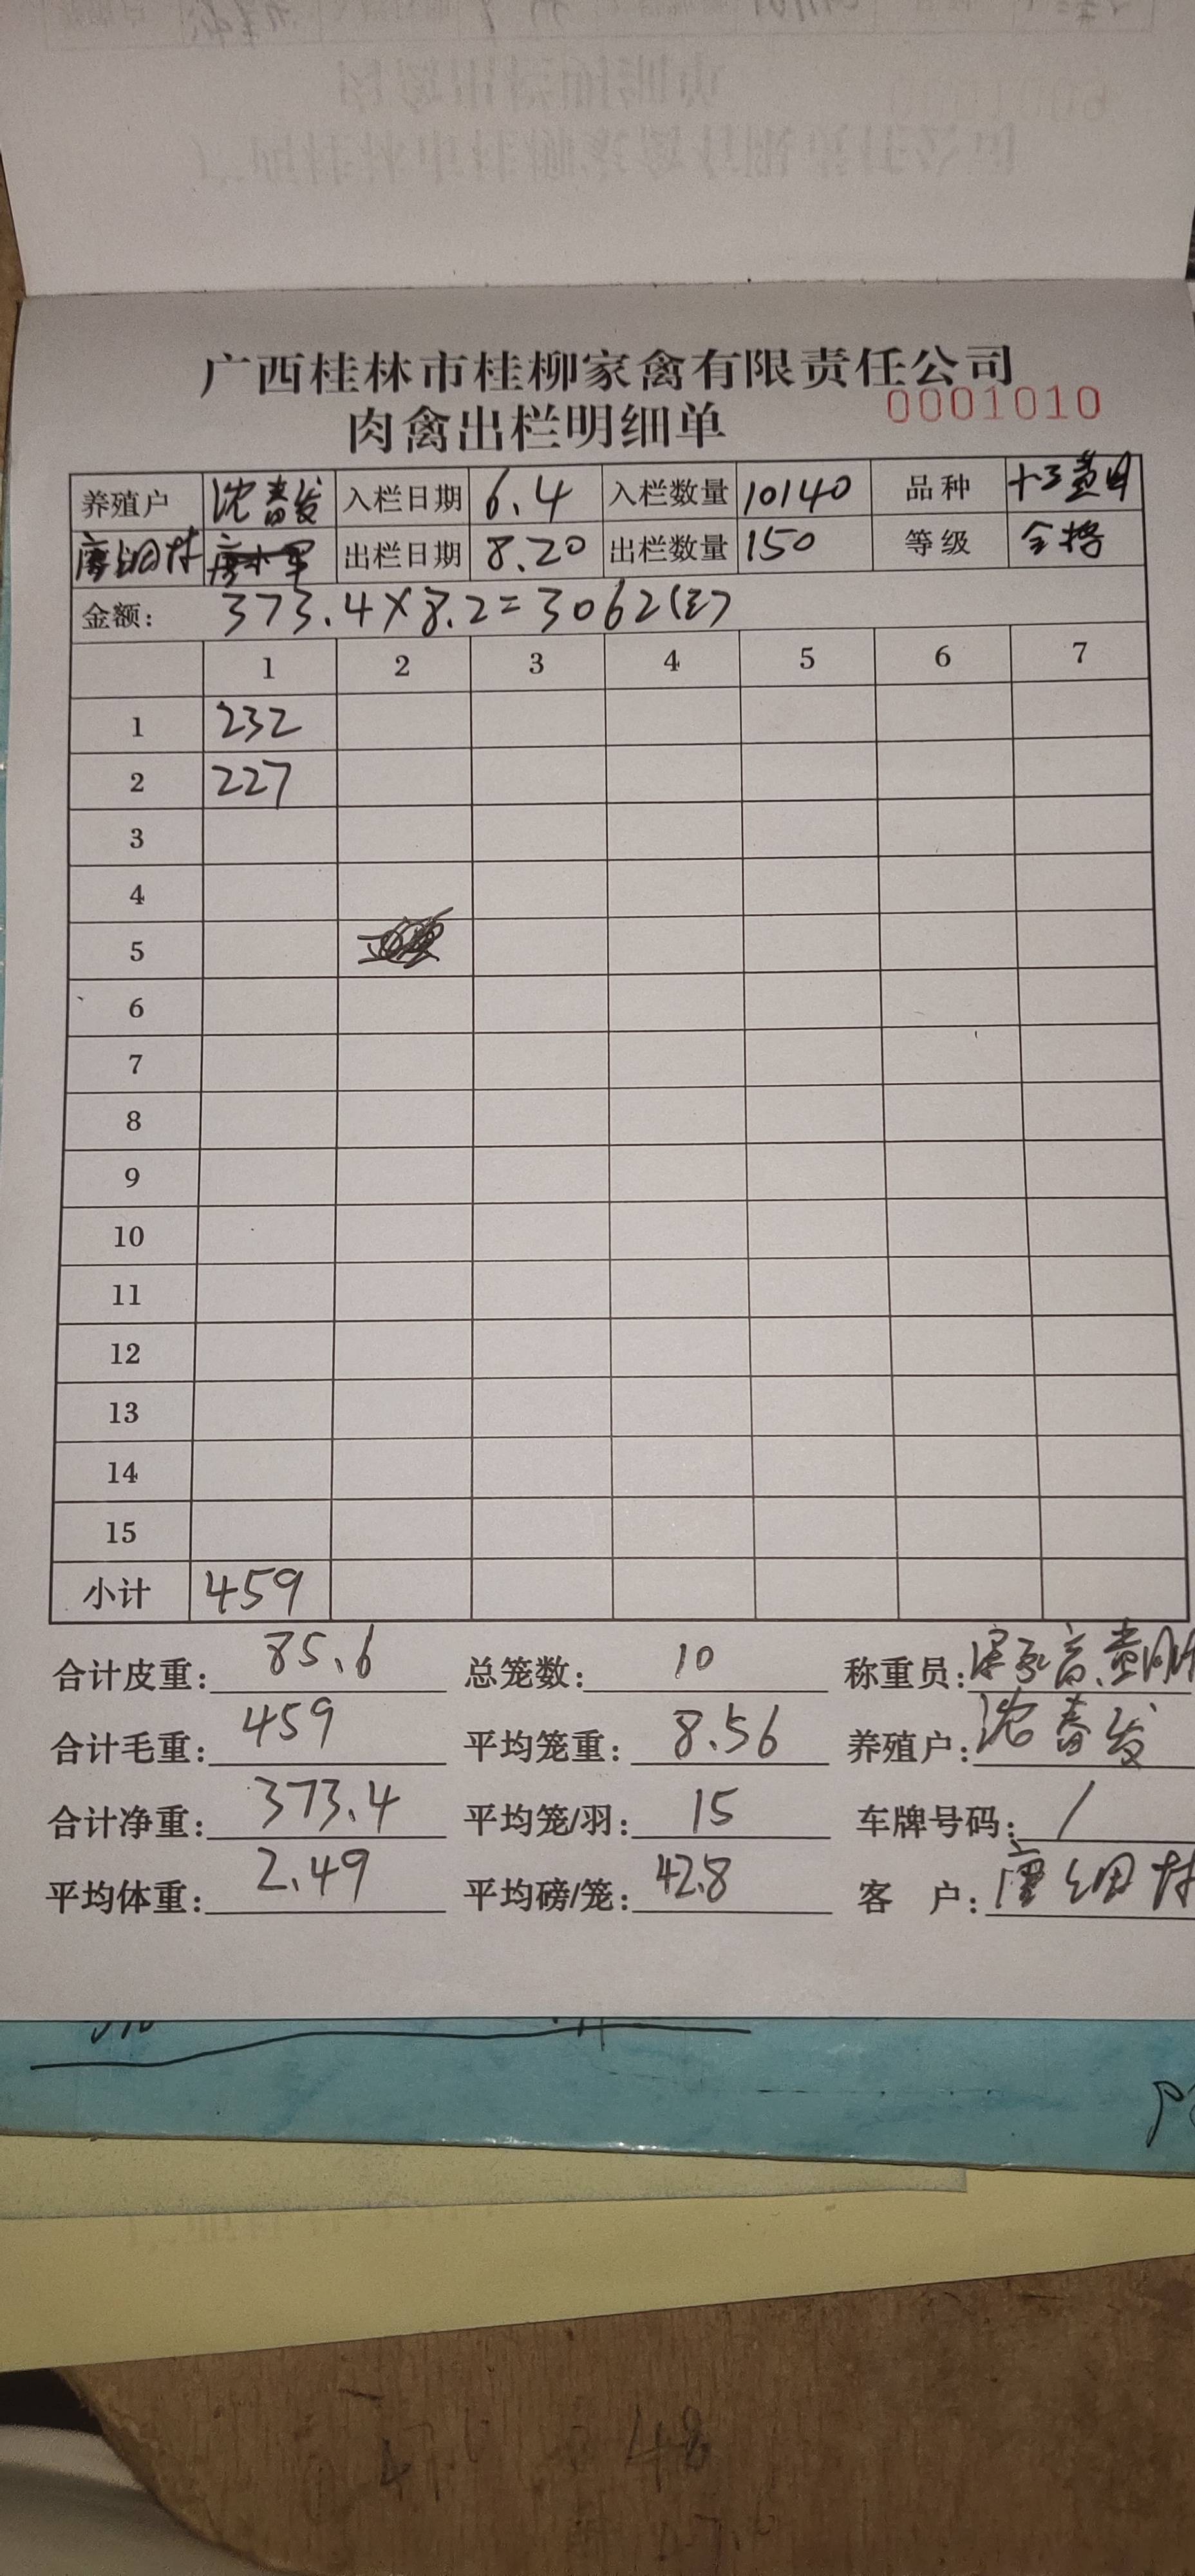 广西桂林市桂柳家禽有限责任公司
肉禽出栏明细单 0001010
养殖户 沈春发 入栏日期 6.4 入栏数量 10140 品种
唐细林 出栏日期 8.20 出栏数量 150 等级 合格
金额: 373.4×8.2=3062
1 2 3 4 5 6 7
1 232
2 227
3
4
5
6
7
8
9
10
11
12
13
14
15
小计 459
合计皮重: 85.6 总笼数: 10 称重员:
合计毛重: 459 平均笼重: 8.56 养殖户: 沈春发
合计净重: 373.4 平均笼/羽: 15 车牌号码: /
平均体重: 2.49 平均磅/笼: 42.8 客 户: 唐细林